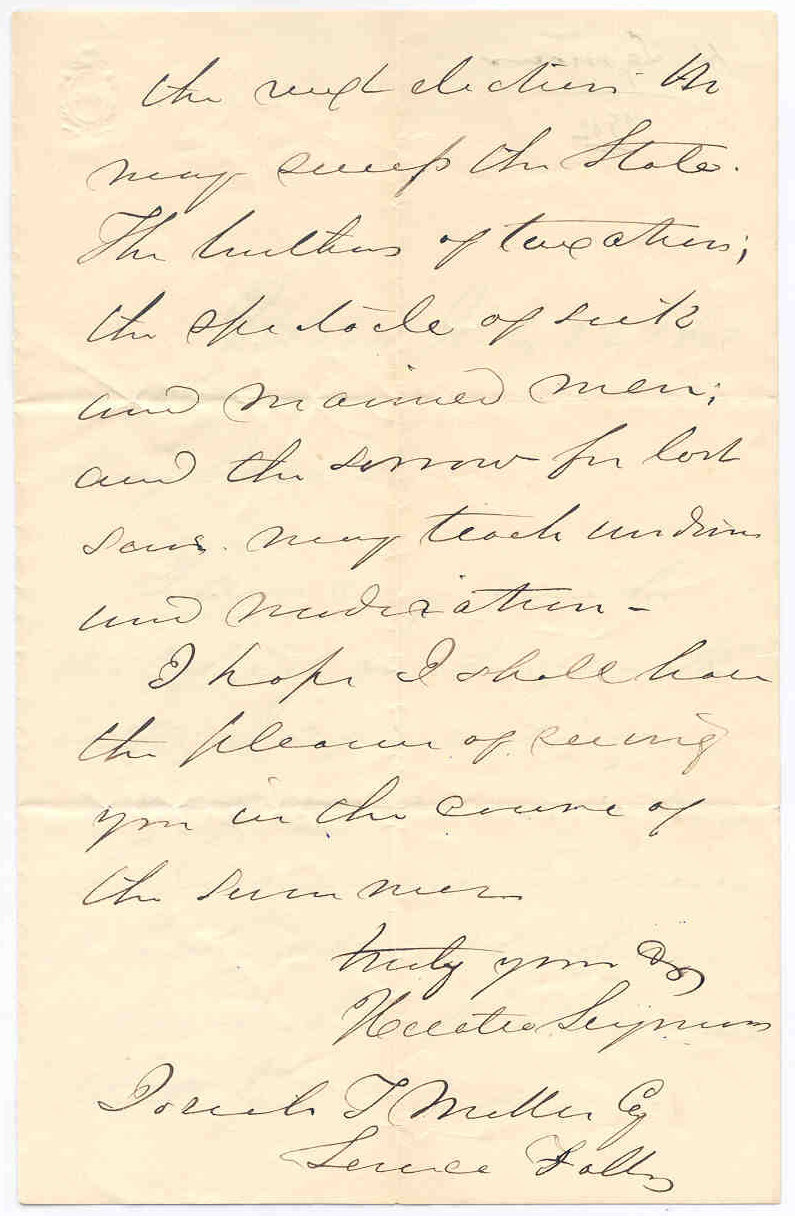 the next election the
may sweep the State.
The burthens of taxation;
the spectacle of sick
and maimed men;
and the sorrow for lost
sons. may teach wisdom
and moderation -
I hope I shall have
the pleasure of seeing
you in the course of
the summer
truly yours &c
Horatio Seymour
Josiah T Miller Esq
Seneca Falls